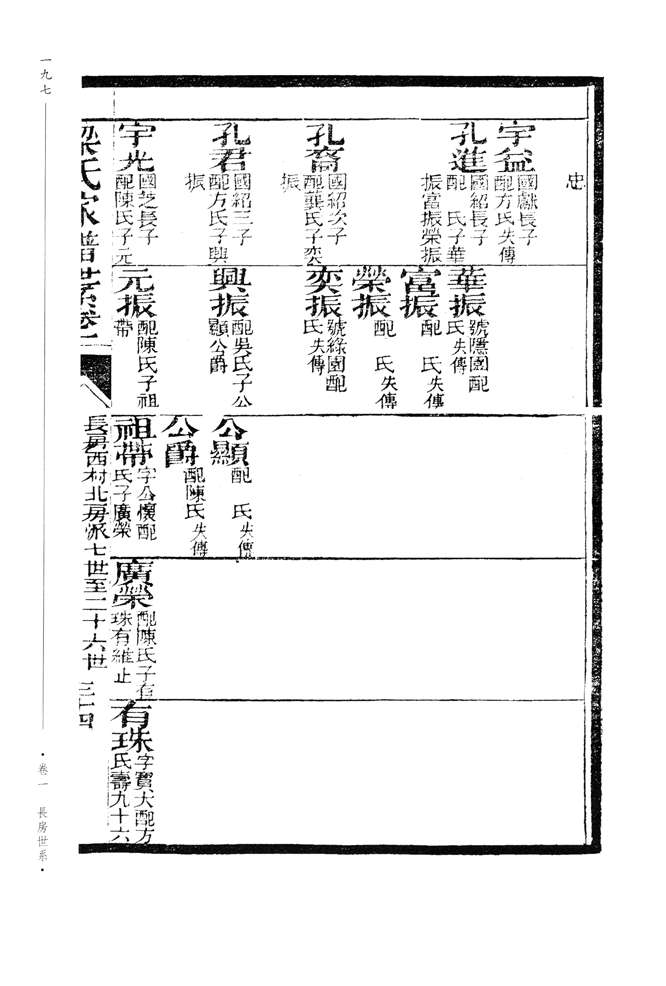 忠
宇益 國獻長子
配方氏失傳
孔進 國紹長子
配　氏子華
振富振榮振
孔裔 國紹次子
配龔氏子奕
振
孔君 國紹三子
配方氏子興
振
宇光 國芝長子
配陳氏子元
華振 號隱園配
氏失傳
富振 配　氏失傳
榮振 配　氏失傳
奕振 號綠園配
氏失傳
興振 配吳氏子公
顯公爵
元振 配陳氏子祖
帶
公顯 配　氏失傳
公爵 配陳氏失傳
祖帶 字公懷配
氏子廣榮
廣榮 配陳氏子有
珠有維止
有珠 字寶大配方
氏壽九十六
梁氏家譜世系卷一
長房西村北房派七世至二十六世　三十四
一九七
·卷一　長房世系·